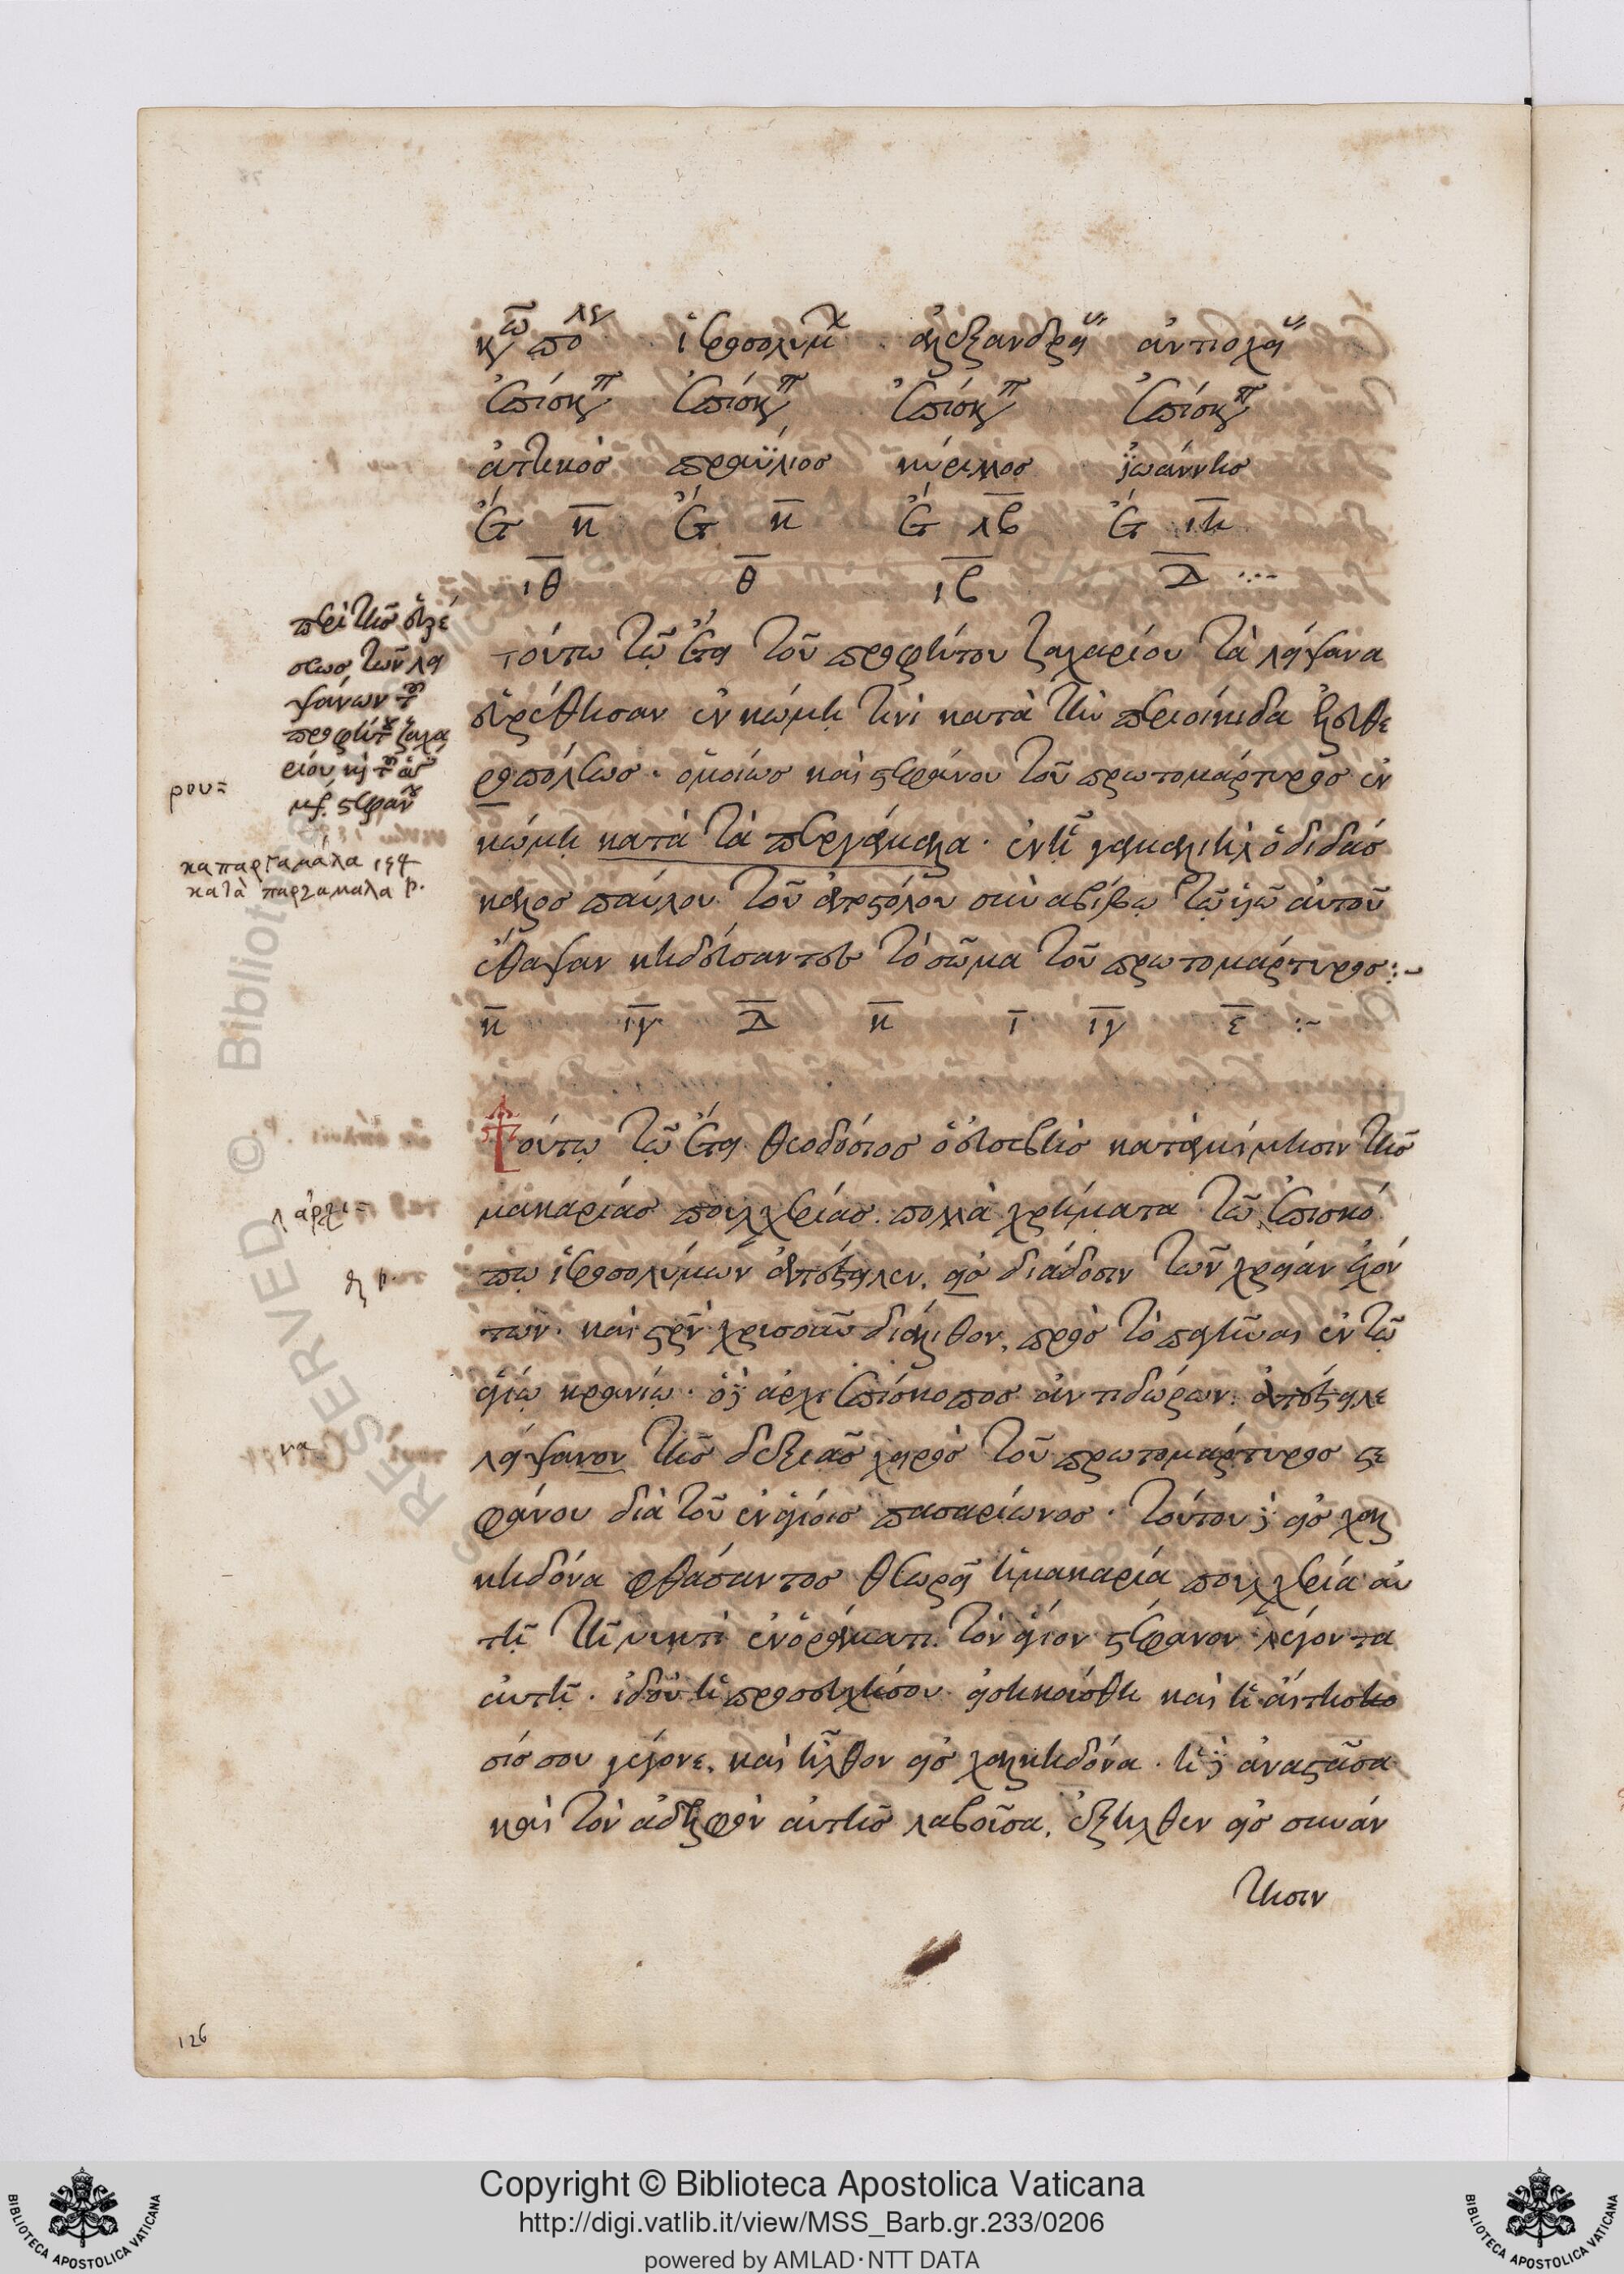 κων πόλ ἱεροσολύμ ἀλεξανδρεί ἀντιοχεί
ἐπίσκοπ ἐπίσκοπ ἐπίσκοπ ἐπίσκοπ
ἀττικὸσ πραΰλιοσ κύριλλοσ ϊωάννησ
ἔτ κ ἔτ κ ἔτ λβ ἔτ ιη
ιθ θ ιβ δ
τούτω τῷ ἔτει τοῦ προφήτου ζαχαρίου τὰ λείψανα
εὑρέθησαν ἐν κώμῃ τινὶ κατὰ τὴν περιοικίδα ἐλευθε
ροπόλεωσ. ὁμοίωσ καὶ στεφάνου τοῦ πρωτομάρτυροσ ἐν
κώμῃ κατὰ τὰ περγάμαλα. ἐν ᾗ γαμαλιὴλ ὁ διδάσ
καλοσ παύλου τοῦ ἀποστόλου σὺν ἀβίβῳ τῷ υἱῷ αὐτοῦ
ἔθαψαν κηδεύσαντεσ τὸ σῶμα τοῦ πρωτομάρτυροσ:~
κ ιγ δ κ ι ιγ ε :~
Τούτῳ τῷ ἔτει θεοδόσιοσ ὁ εὐσεβὴσ κατὰ μίμησιν τῆσ
μακαρίασ πουλχερίασ. πολλὰ χρήματα τῷ ἐπισκό
πῳ ἱεροσολύμων ἀπέστειλεν, εἰσ διάδοσιν τῶν χρείαν ἐχόν
των. καὶ στρν χρυσοῦν διάλιθον, πρὸσ τὸ παγῆναι ἐν τῷ
ἁγίῳ κρανίῳ. ὁ δὲ ἀρχιεπίσκοποσ ἀντίδωρον. ἀπέστειλε
λείψανον τῆσ δεξιᾶσ χειρὸσ τοῦ πρωτομάρτυροσ στε
φάνου διὰ τοῦ ἐν ἁγίοισ πασαρίωνοσ. τούτου δὲ εἰσ χαλ
κηδόνα φθάσαντοσ θεωρεῖ ἡ μακαρία πουλχερία αὐ
τῇ τῇ νυκτὶ ἐν ὁράματι. τὸν ἅγιον στέφανον λέγοντα
αὐτῇ. ἰδοὺ ἡ προσευχή σου εἰσηκούσθη καὶ ἡ αἴτησισ
σου γέγονε, καὶ ἦλθον εἰσ χαλκηδόνα. ἡ δὲ ἀναστᾶσα
καὶ τὸν ἀδελφὸν αὐτῆσ λαβοῦσα, ἐξῆλθεν εἰσ συνάν
τησιν
περὶ τῆσ εὑρέ
σεωσ τῶν λει
ψάνων τοῦ
προφήτου ζαχα
ρίου καὶ τοῦ ἁγ
μρ. στεφάν
ρου=
καπαργαμάλα
κατὰ παργαμαλα p.
λ ἀρχι=
p.
να
126
Copyright © Biblioteca Apostolica Vaticana
http://digi.vatlib.it/view/MSS_Barb.gr.233/0206
powered by AMLAD·NTT DATA
BIBLIOTECA APOSTOLICA VATICANA
BIBLIOTECA APOSTOLICA VATICANA